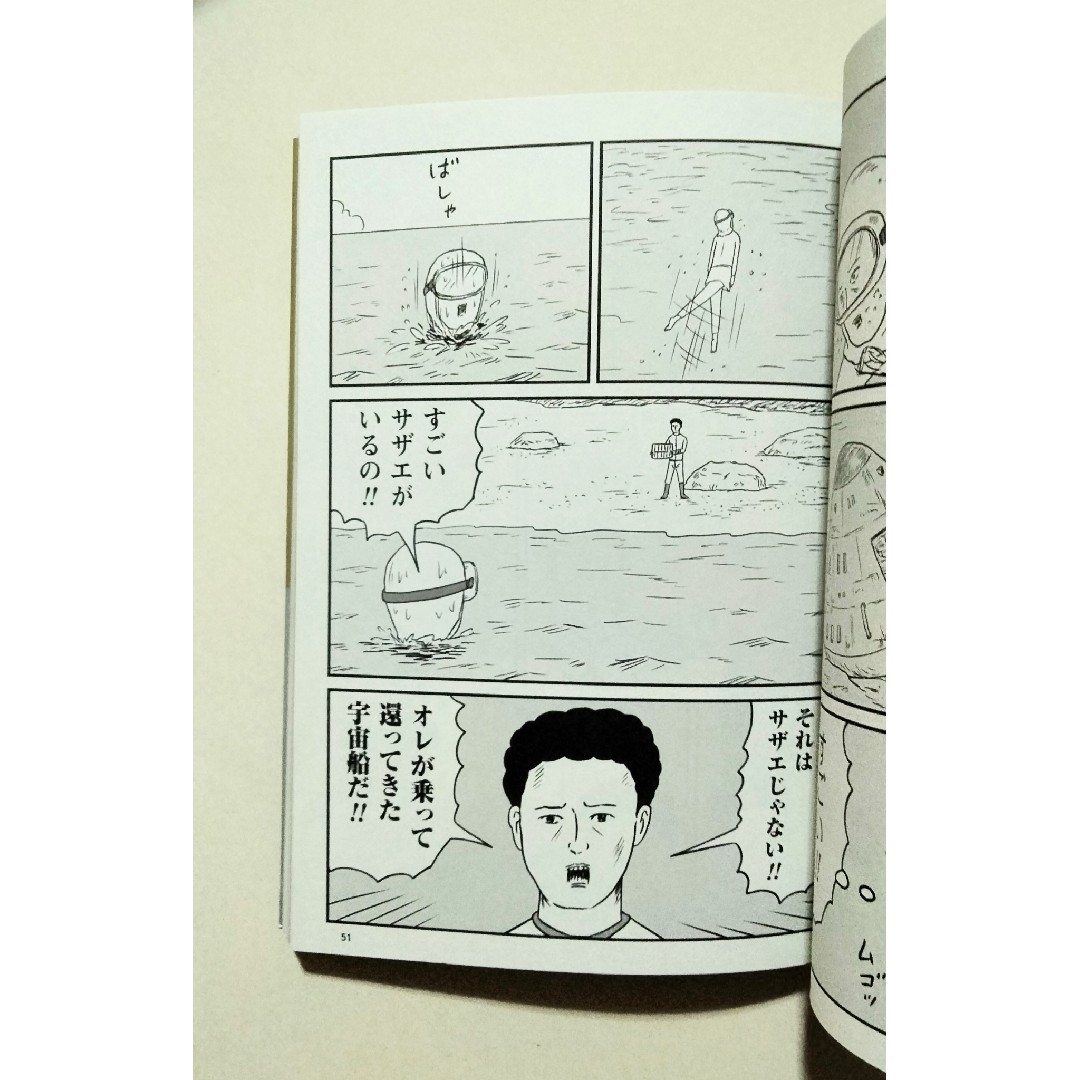 ばしゃ
すごい
サザエが
いるの!!
それは
サザエじゃない!!
オレが乗って
還ってきた
宇宙船だ!!
51
ムゴッ